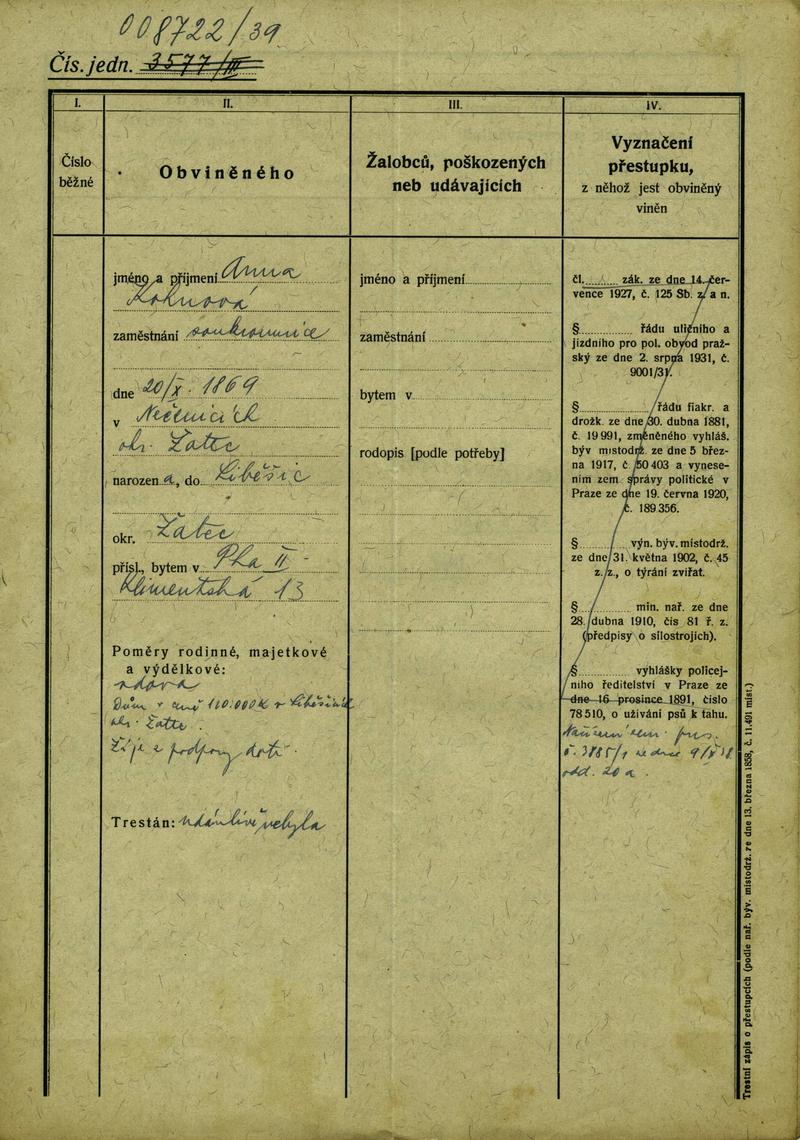 008722/39
Čís. jedn. 3577/II
I.
Číslo
běžné
II.
Obviněného
jméno a příjmení Anna
Kohnová
zaměstnání soukromnice
dne 20/X. 1869
v
okr. Žatec
narozen a, do Liběšic
okr. Žatec
přísl., bytem v Praha II
Klimentská 13
Poměry rodinné, majetkové
a výdělkové:
vdova
Dům v ceně 110.000 K v
okr. Žatec.
Žije z podpory dětí.
Trestán: udánlivě nebyla
III.
Žalobců, poškozených
neb udávajících
jméno a příjmení
zaměstnání
bytem v
rodopis [podle potřeby]
IV.
Vyznačení
přestupku,
z něhož jest obviněný
viněn
čl. zák. ze dne 14. čer-
vence 1927, č. 125 Sb. z. a n.
§ řádu uličního a
jízdního pro pol. obvod praž-
ský ze dne 2. srpna 1931, č.
9001/31.
§ řádu fiakr. a
drožk. ze dne 30. dubna 1881,
č. 19 991, změněného vyhláš.
býv mistodrž. ze dne 5 břez-
na 1917, č. 50 403 a vynese-
ním zem správy politické v
Praze ze dne 19. června 1920,
č. 189 356.
§ výn. býv. místodrž.
ze dne 31. května 1902, č. 45
z. z., o týrání zvířat.
§ min. nař. ze dne
28. dubna 1910, čís 81 ř. z.
(předpisy o silostrojích).
§ vyhlášky policej-
ního ředitelství v Praze ze
dne 16 prosince 1891, číslo
78 510, o užívání psů k tahu.
Trestní zápis o přestupcích (podle nař. býv. místodrž. ze dne 13. března 1858, č. 11.491 míst.)